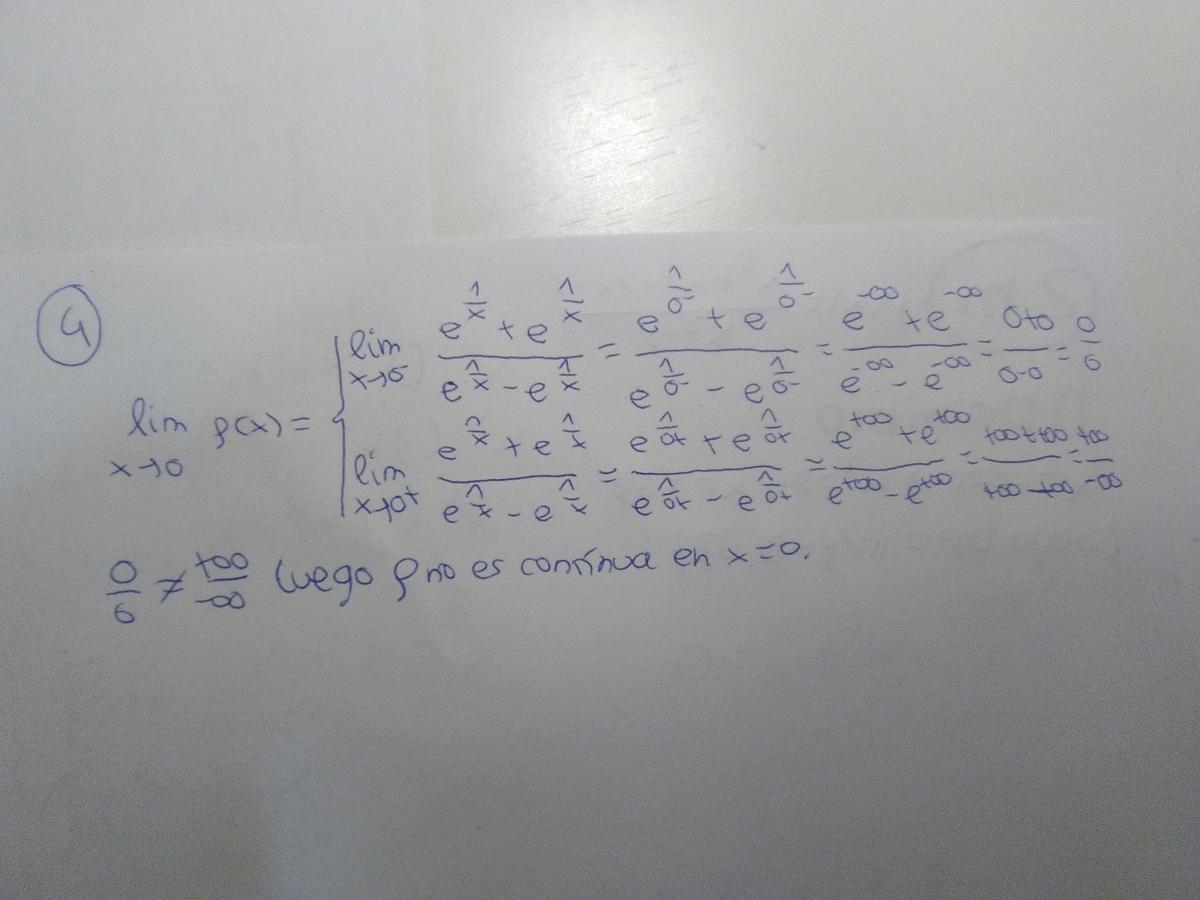 4
lim x→0⁻ (e^(1/x) + e^(1/x))/(e^(1/x) - e^(1/x)) = (e^(1/0⁻) + e^(1/0⁻))/(e^(1/0⁻) - e^(1/0⁻)) = (e^(-∞) + e^(-∞))/(e^(-∞) - e^(-∞)) = (0+0)/(0-0) = 0/0
lim x→0 f(x) = {
lim x→0⁺ (e^(1/x) + e^(1/x))/(e^(1/x) - e^(1/x)) = (e^(1/0+) + e^(1/0+))/(e^(1/0+) - e^(1/0+)) = (e^(+∞) + e^(+∞))/(e^(+∞) - e^(+∞)) = (+∞++∞)/(+∞-+∞) = +∞/-∞
0/0 ≠ +∞/-∞ luego f no es contínua en x=0.